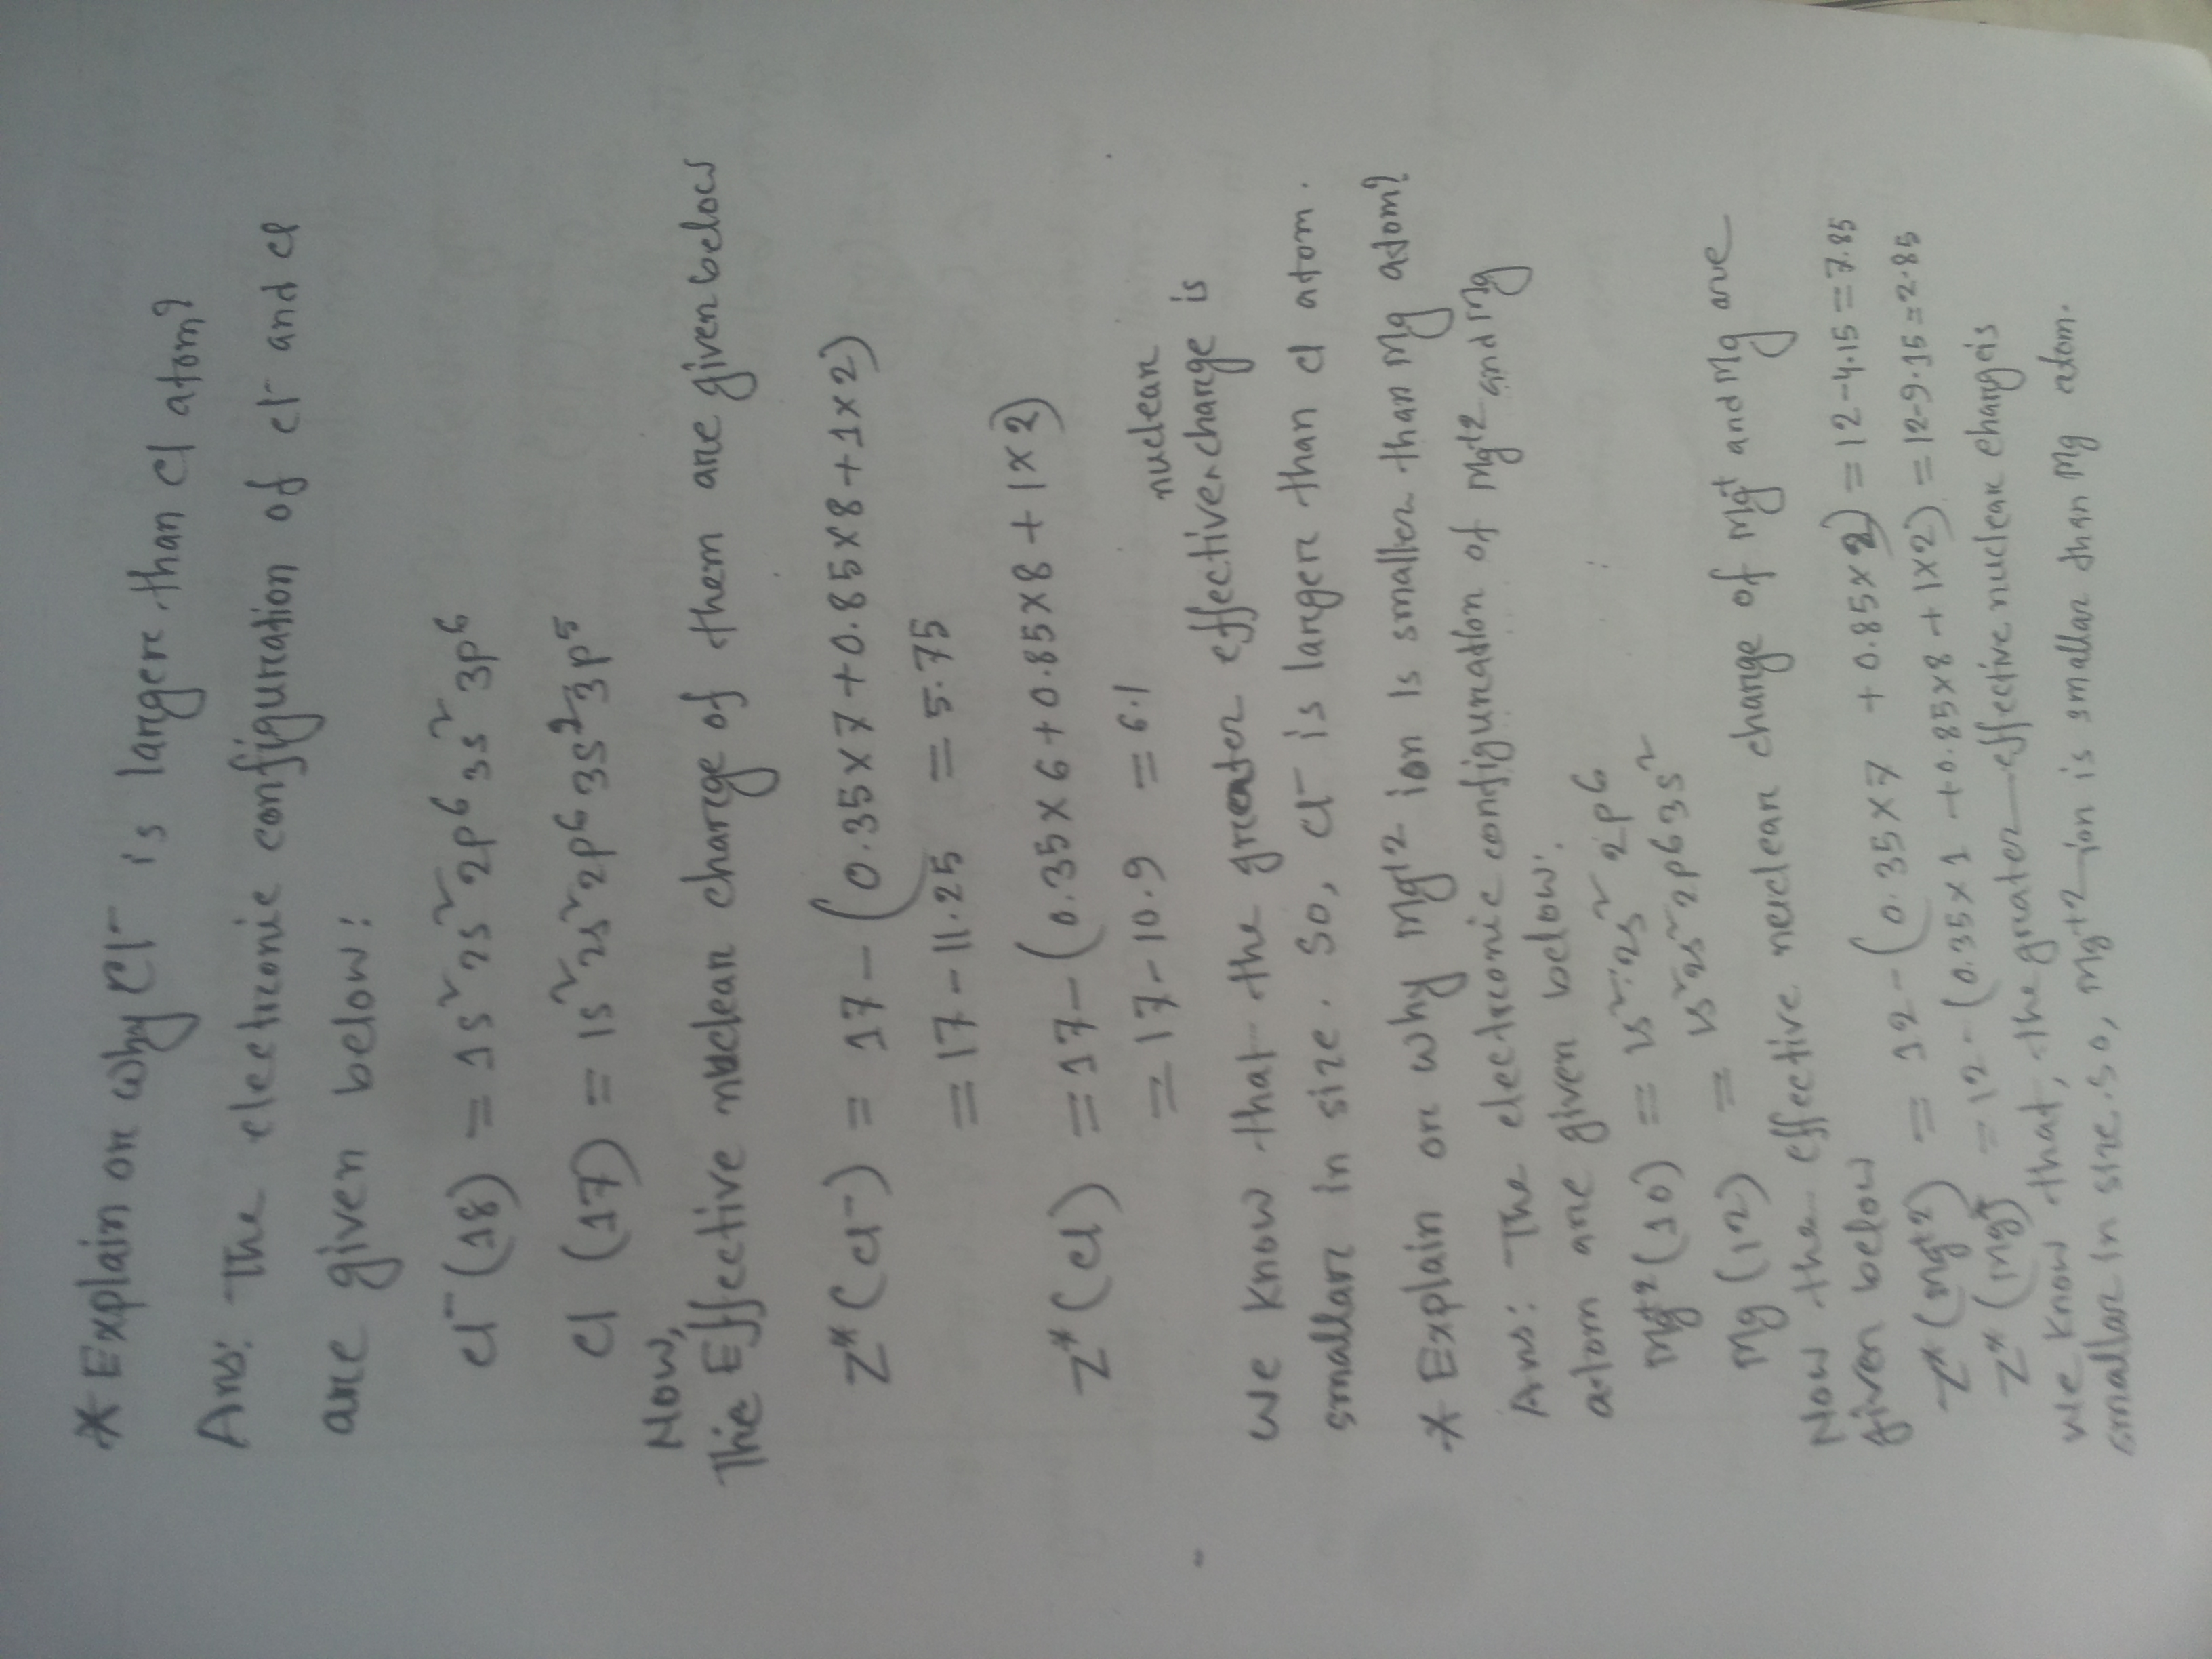 * Explain or why Cl⁻ is larger than Cl atom?
Ans: The electronic configuration of Cl⁻ and Cl
are given below:
Cl⁻ (18) = 1s² 2s² 2p⁶ 3s² 3p⁶
Cl (17) = 1s² 2s² 2p⁶ 3s² 3p⁵
Now,
The Effective nuclear charge of them are given below
Z* (Cl⁻) = 17 - (0.35×7+0.85×8+1×2)
= 17 - 11.25 = 5.75
Z* (Cl) = 17 - (0.35×6+0.85×8+1×2)
= 17 - 10.9 = 6.1
We know that the greater effective nuclear charge is
smallar in size. So, Cl⁻ is larger than Cl atom.
* Explain or why Mg⁺² ion is smaller than Mg atom?
Ans: The electronic configuration of Mg⁺² and Mg
atom are given below:
Mg⁺² (10) = 1s² 2s² 2p⁶
Mg (12) = 1s² 2s² 2p⁶ 3s²
Now the effective nuclear charge of Mg⁺ and Mg are
given below
Z* (Mg⁺²) = 12 - (0.35×7 + 0.85×2) = 12-4.15 = 7.85
Z* (Mg) = 12 - (0.35×1 + 0.85×8 + 1×2) = 12-9.15 = 2.85
We know that, the greater effective nuclear charge is
smallar in size. So, Mg⁺² ion is smallar than Mg atom.